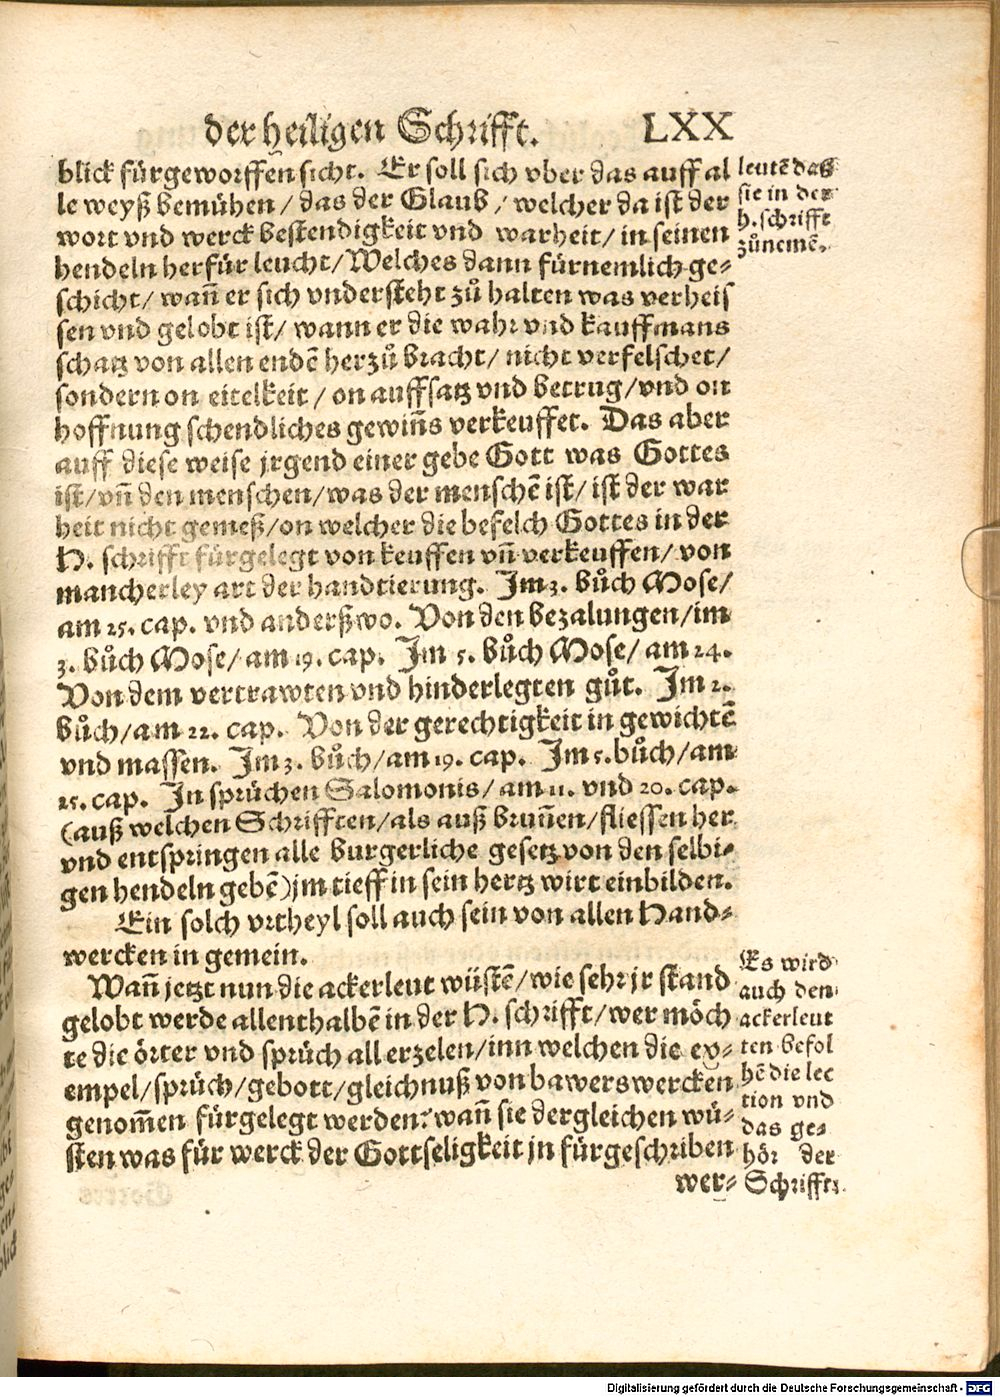 der heiligen Schrifft. LXX
blick fürgeworffen sicht. Er soll sich vber das auff al
le weyß bemühen / das der Glaub / welcher da ist der
wort vnd werck bestendigkeit vnd warheit / in seinen
hendeln herfür leucht / Welches dann fürnemlich ge-
schicht / wañ er sich vndersteht zů halten was verheis
sen vnd gelobt ist / wann er die wahr vnd kauffmans
schatz von allen endē herzů bracht / nicht verfelschet /
sondern on eitelkeit / on auffsatz vnd betrug / vnd on
hoffnung schendliches gewiñs verkeuffet. Das aber
auff diese weise jrgend einer gebe Gott was Gottes
ist / vñ den menschen / was der menschē ist / ist der war
heit nicht gemeß / on welcher die befelch Gottes in der
H. schrifft fürgelegt von keuffen vñ verkeuffen / von
mancherley art der handtierung. Im 3. bůch Mose /
am 25. cap. vnd anderßwo. Von den bezalungen / im
3. bůch Mose / am 19. cap. Im 5. bůch Mose / am 24.
Von dem vertrawten vnd hinderlegten gůt. Im 2.
bůch / am 22. cap. Von der gerechtigkeit in gewichtē
vnd massen. Im 3. bůch / am 19. cap. Im 5. bůch / am
25. cap. In sprüchen Salomonis / am 11. vnd 20. cap.
(auß welchen Schrifften / als auß bruñen / fliessen her
vnd entspringen alle burgerliche gesetz von den selbi-
gen hendeln gebē) jm tieff in sein hertz wirt einbilden.
Ein solch vrtheyl soll auch sein von allen Hand-
wercken in gemein.
Wañ jetzt nun die ackerleut wüstē / wie sehr jr stand
gelobt werde allenthalbē in der H. schrifft / wer möch
te die örter vnd sprüch all erzelen / inn welchen die ex-
empel / sprüch / gebott / gleichnuß von bawerswercken
genom̃en fürgelegt werden: wañ sie dergleichen wü-
sten was für werck der Gottseligkeit jn fürgeschriben
wer-
leutē das
sie in der
h. schrifft
zůnemē.
Es wird
auch den
ackerleut
ten befol
hē die lec
tion vnd
das ge-
hör der
Schrifft.
Digitalisierung gefördert durch die Deutsche Forschungsgemeinschaft - DFG